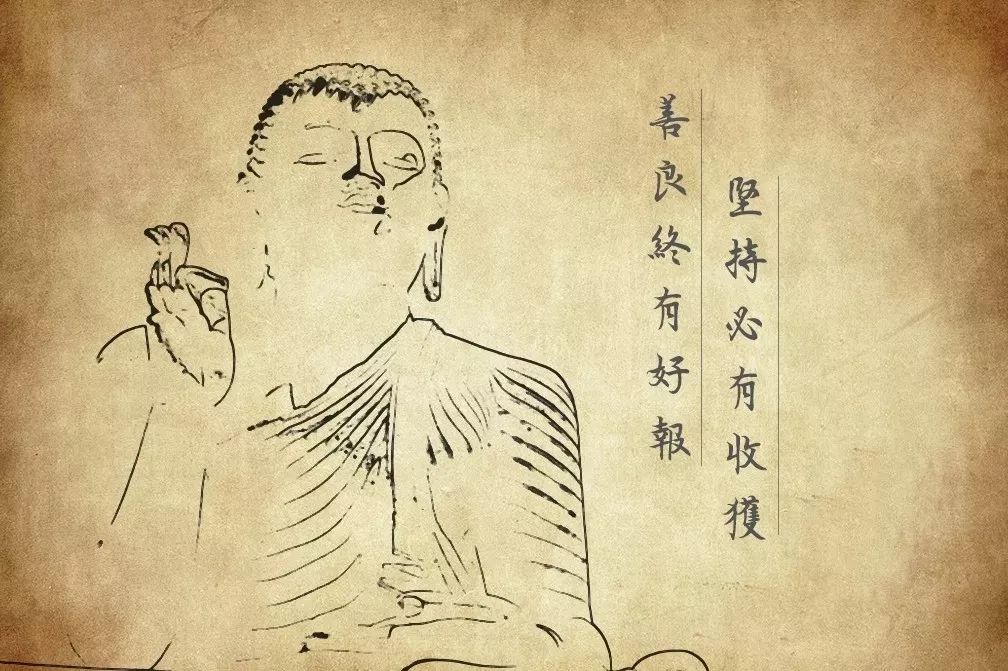 善良終有好報
堅持必有收獲